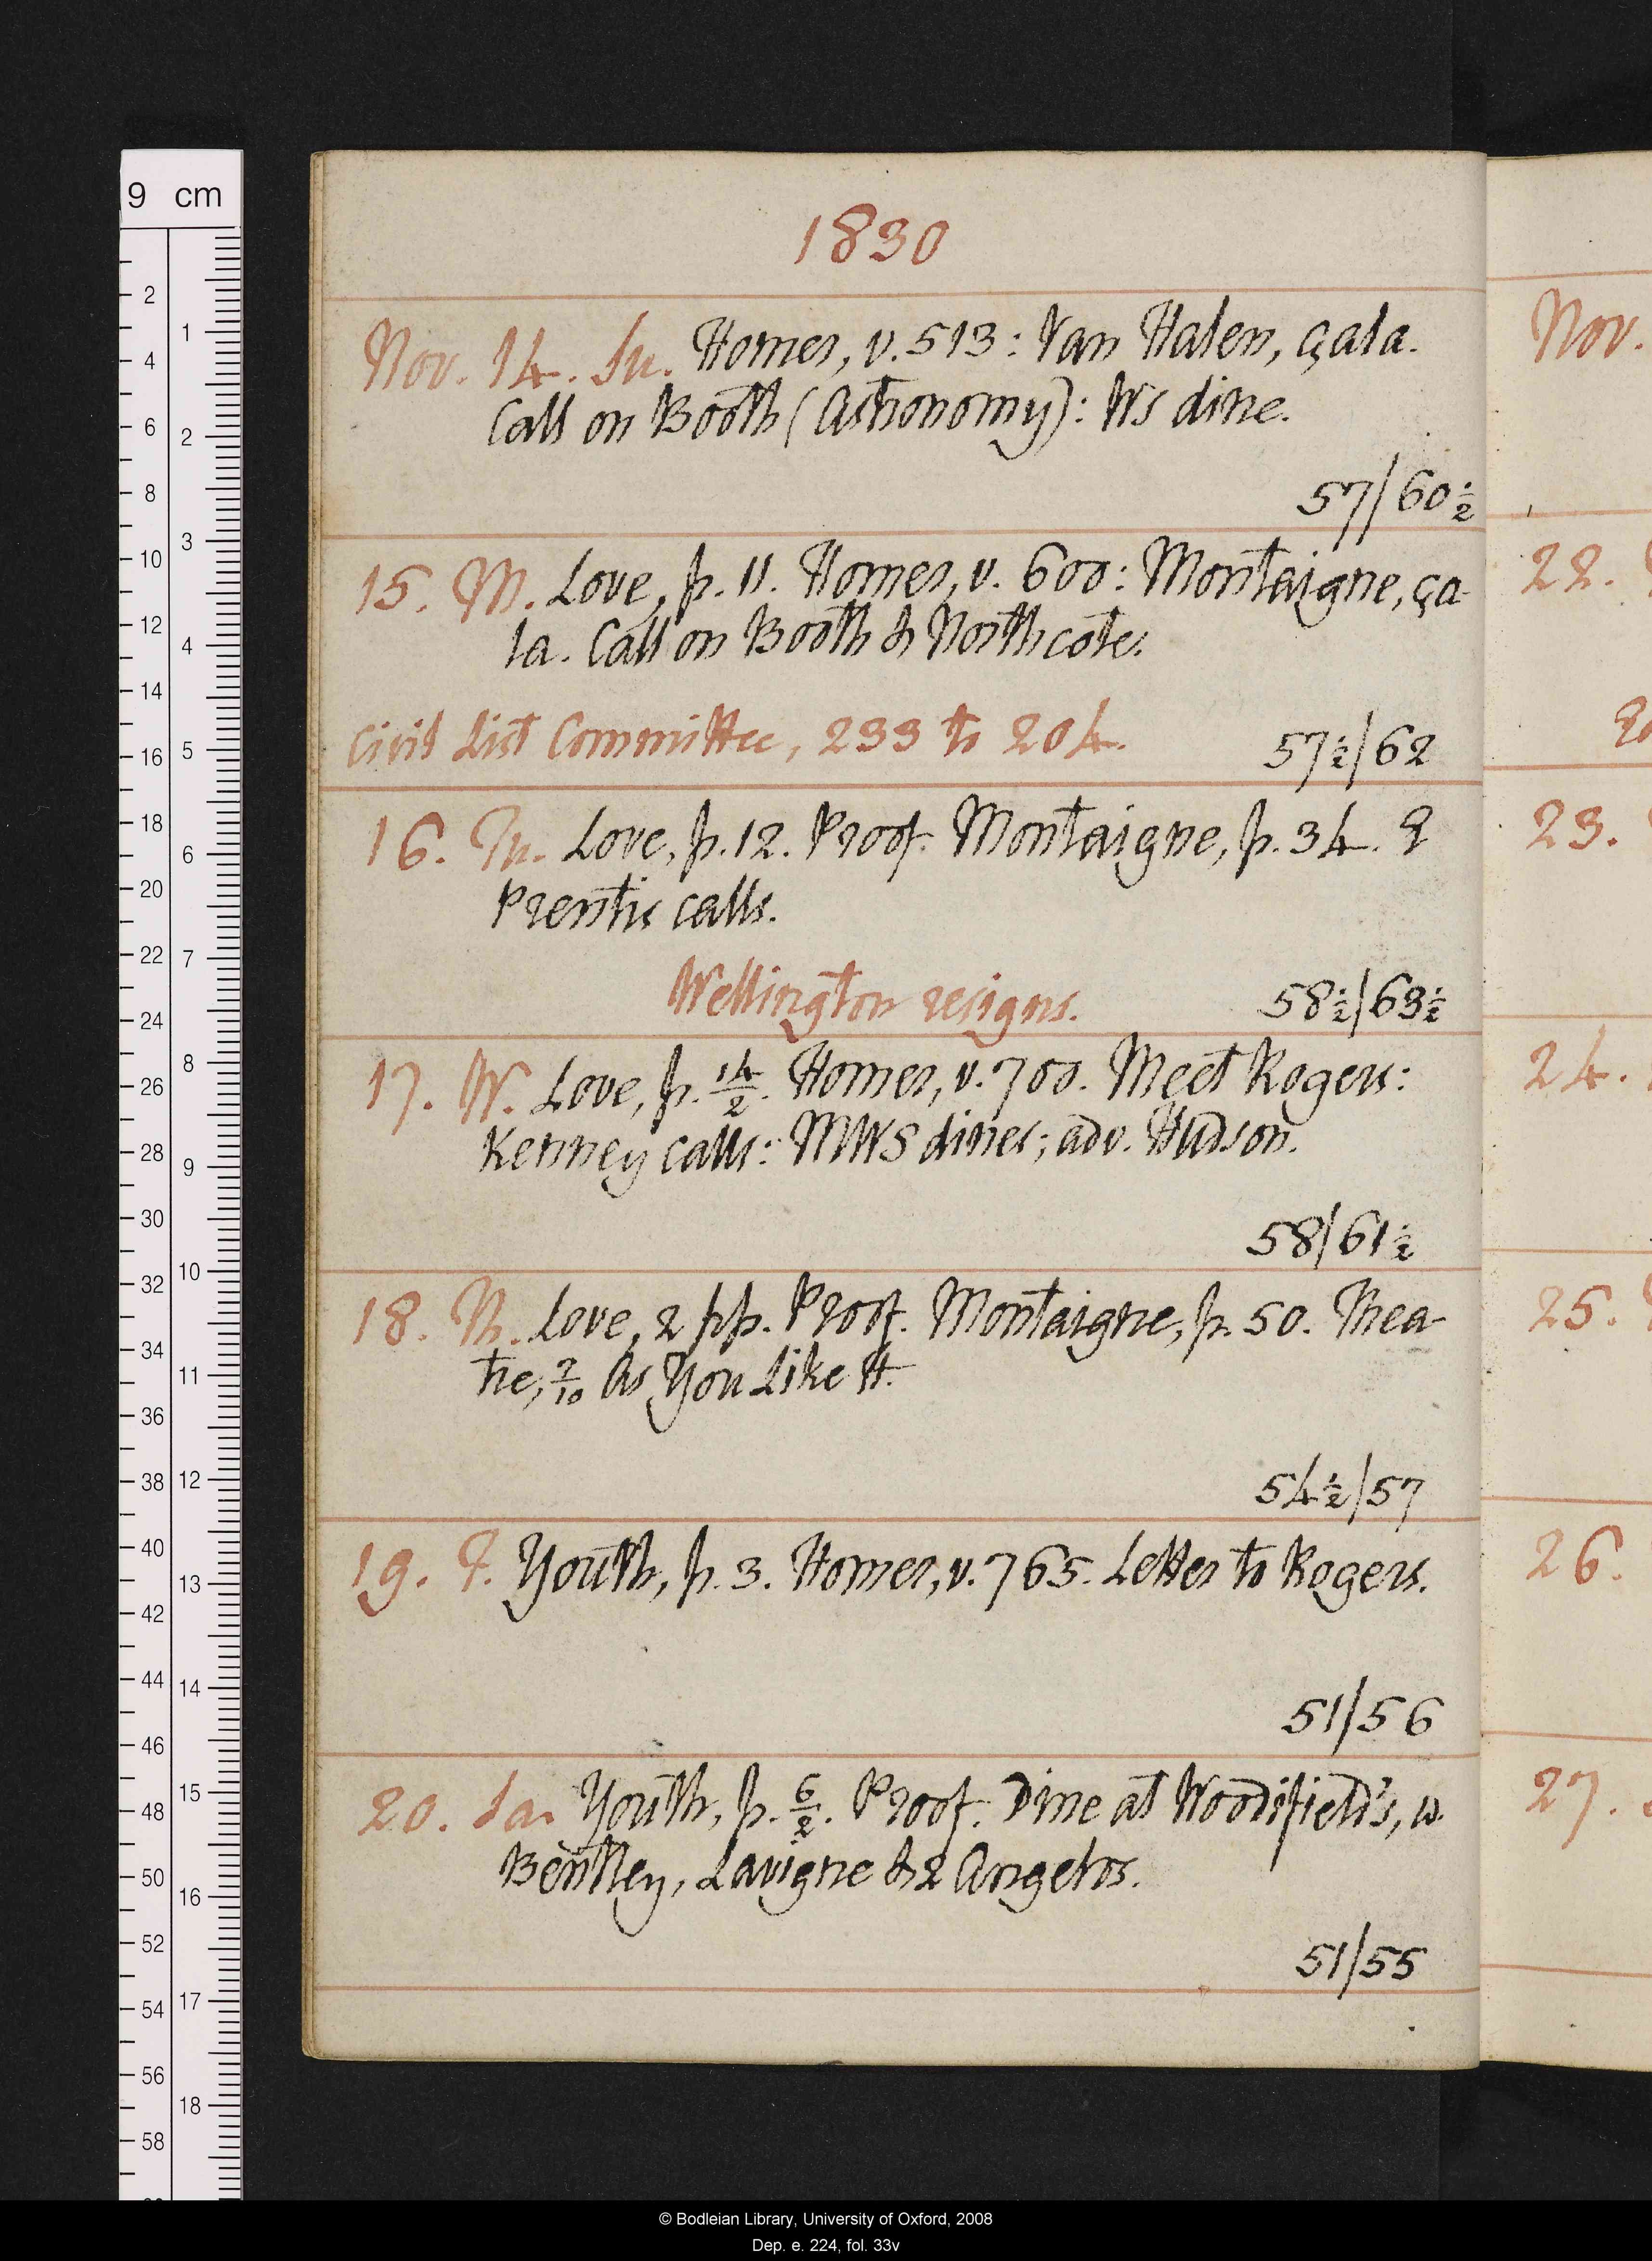 1830
Nov. 14. Su. Homer, v. 513: Van Halen, çala.
Call on Booth (Astronomy): Ws dine.
57/60½
15. M. Love, p. 11. Homer, v. 600: Montaigne, ça-
la. Call on Booth & Northcote.
Civil List Committee, 233 to 204.
57½/62
16. Tu. Love, p. 12. Proof. Montaigne, p. 34.
Prentis calls.
Wellington resigns.
58½/63½
17. W. Love, p. 14/2. Homer, v. 700. Meet Rogers:
Kenney calls: MWS dines; adv. Hudson.
58/61½
18. Th. Love, 2 pp. Proof. Montaigne, p. 50. Thea-
tre, 2/10 As You Like It.
54½/57
19. F. Youth, p. 3. Homer, v. 765. Letter to Rogers.
51/56
20. Sa. Youth, p. 6/2. Proof. Dine at Woodifield's, w.
Bentley, Lavigne & 2 Angelos.
51/55
Nov.
22.
23.
24.
25.
26.
27.
9 cm
2
4
6
8
10
12
14
16
18
20
22
24
26
28
30
32
34
36
38
40
42
44
46
48
50
52
54
56
58
1
2
3
4
5
6
7
8
9
10
11
12
13
14
15
16
17
18
© Bodleian Library, University of Oxford, 2008
Dep. e. 224, fol. 33v